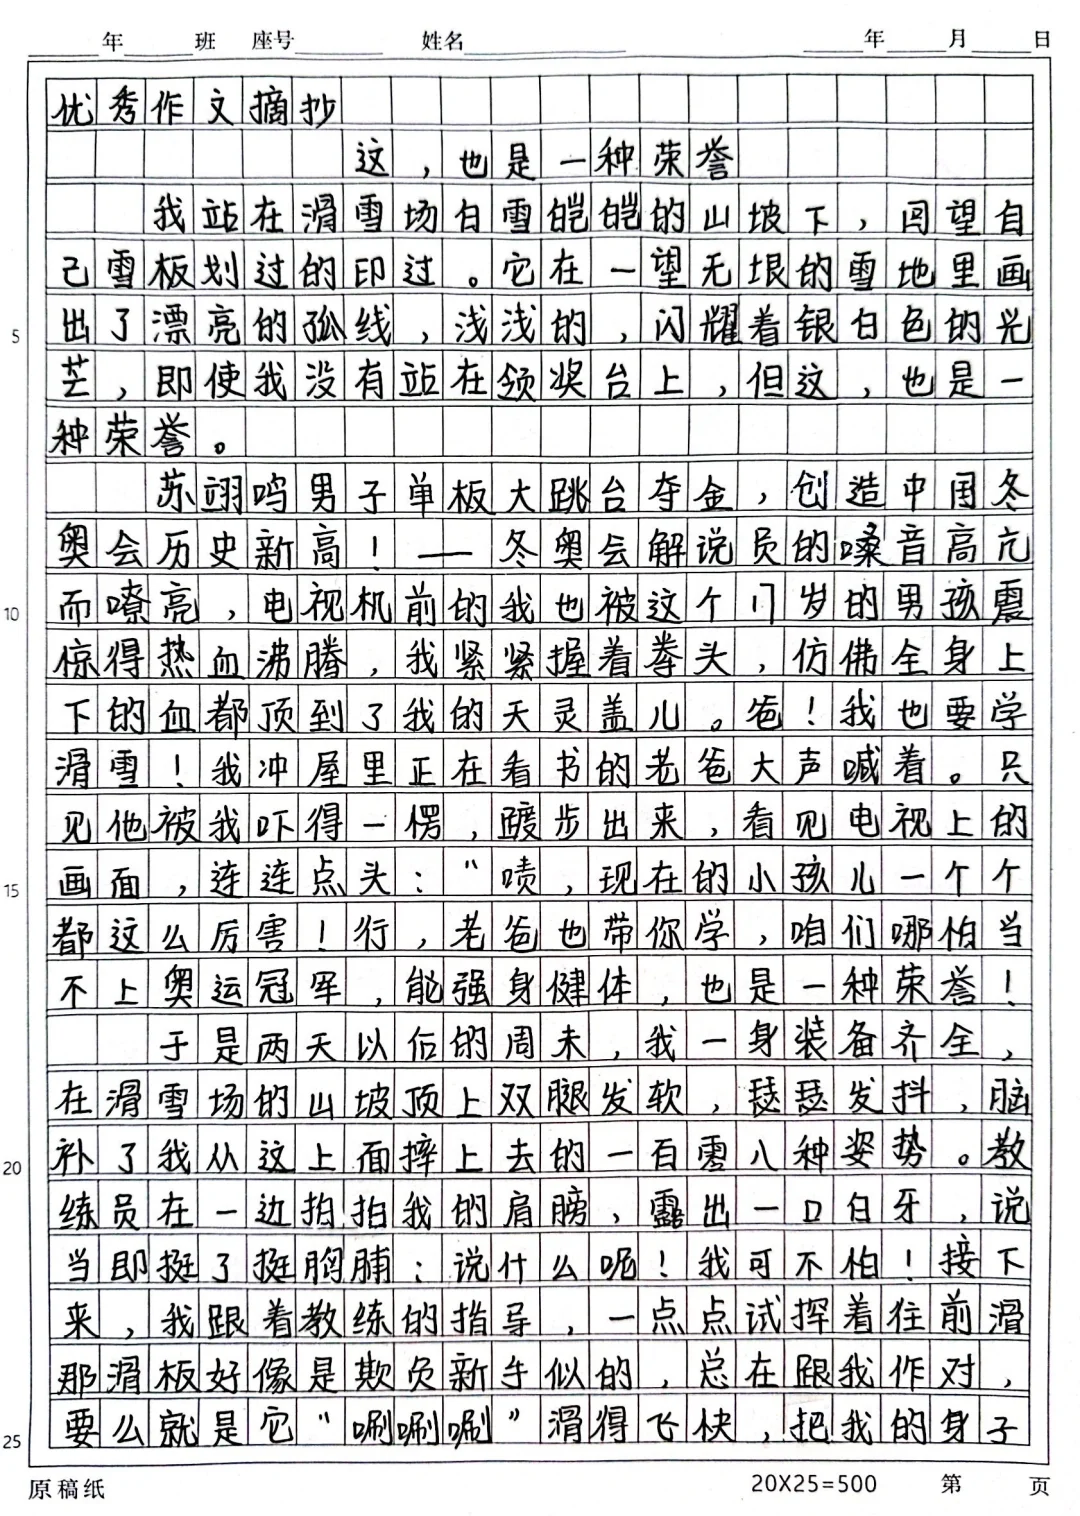 年 班 座号 姓名 年 月 日
优秀作文摘抄
这，也是一种荣誉
我站在滑雪场白雪皑皑的山坡下，回望自
己雪板划过的印过。它在一望无垠的雪地里画
5 出了漂亮的弧线，浅浅的，闪耀着银白色的光
芒，即使我没有站在领奖台上，但这，也是一
种荣誉。
苏翊鸣男子单板大跳台夺金，创造中国冬
奥会历史新高！——冬奥会解说员的嗓音高亢
10 而嘹亮，电视机前的我也被这个17岁的男孩震
惊得热血沸腾，我紧紧握着拳头，仿佛全身上
下的血都顶到了我的天灵盖儿。爸！我也要学
滑雪！我冲屋里正在看书的老爸大声喊着。只
见他被我吓得一愣，踱步出来，看见电视上的
15 画面，连连点头：“啧，现在的小孩儿一个个
都这么厉害！行，老爸也带你学，咱们哪怕当
不上奥运冠军，能强身健体，也是一种荣誉！
于是两天以后的周末，我一身装备齐全，
在滑雪场的山坡顶上双腿发软，瑟瑟发抖，脑
20 补了我从这上面摔上去的一百零八种姿势。教
练员在一边拍拍我的肩膀，露出一口白牙，说
当即挺了挺胸脯：说什么呢！我可不怕！接下
来，我跟着教练的指导，一点点试挥着往前滑
那滑板好像是欺负新手似的，总在跟我作对，
25 要么就是它“唰唰唰”滑得飞快，把我的身子
原稿纸 20X25=500 第 页